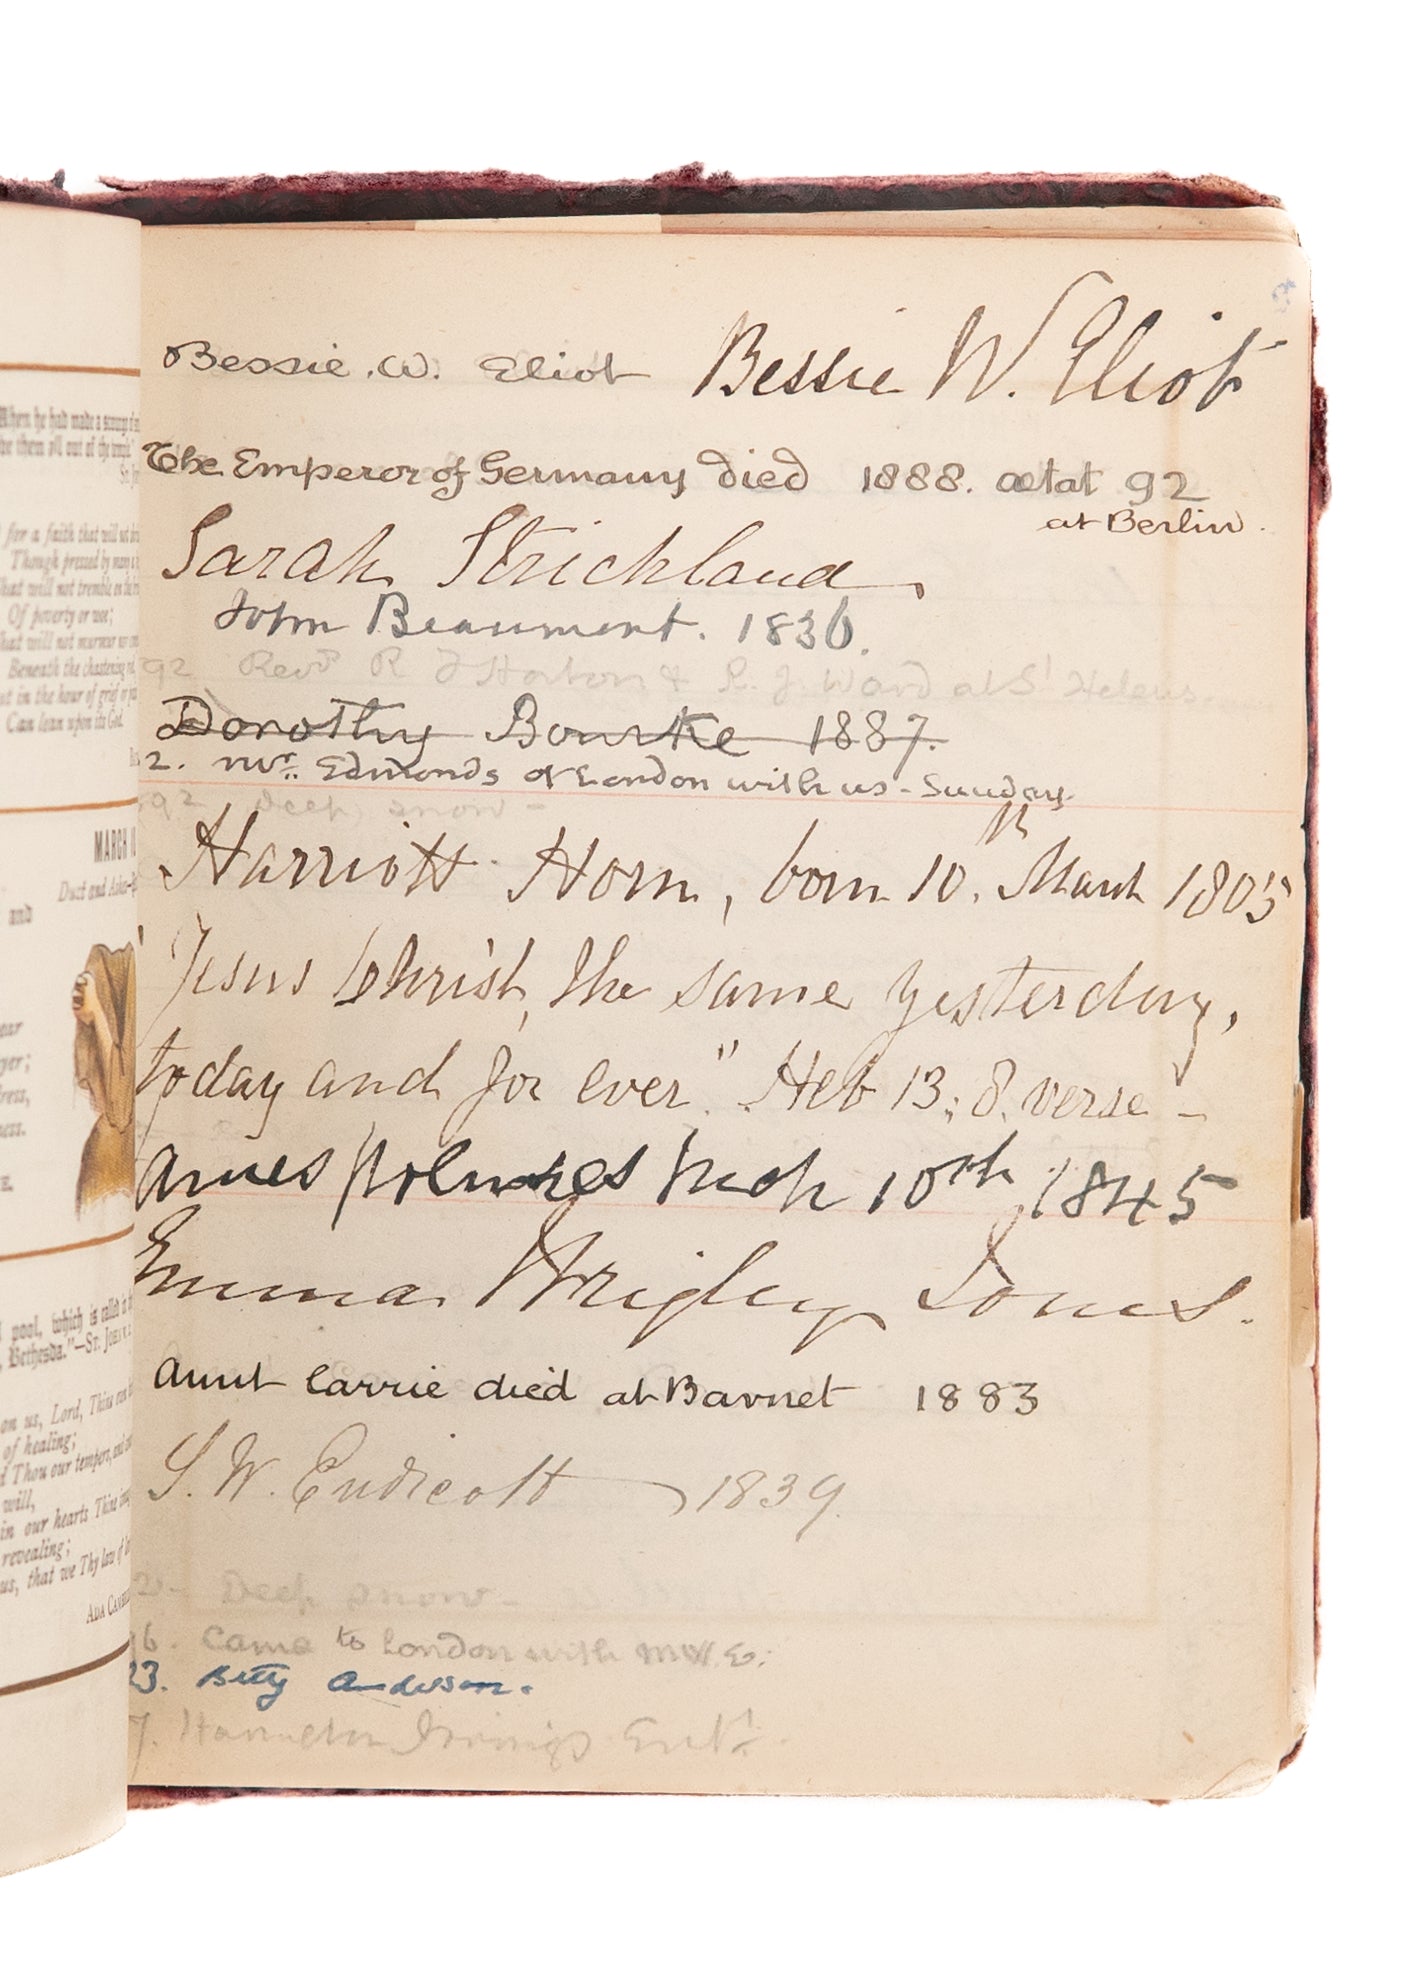 When he had made a scourge of
them all out of the temple."
for a faith that will not
Though pressed by many a
that will not tremble on the
Of poverty or woe;
that will not murmur
Beneath the chastening rod,
in the hour of grief or
Can lean upon its God.
MARCH
Dust and Ashes
and
pool, which is called in
Bethesda."—ST. JOHN
on us, Lord, Thine
of healing;
Thou our tempers,
will,
in our hearts Thine
revealing;
us, that we Thy law of
ADA
Bessie .W. Eliot Bessie W. Eliot
The Emperor of Germany died 1888. ætat 92
at Berlin.
Sarah Strickland,
John Beaumont. 1836.
92 Revd R F Horton & R. J. Ward at St Helens.
Dorothy Bourke 1887.
2. Mr. Edmonds of London with us - Sunday.
92 Deep snow -
Harriott Horn, born 10th March 1805
"Jesus Christ, the same yesterday,
today and for ever." Heb 13: 8. verse -
Mch 10th 1845
Emma Wrigley Jones.
Aunt Carrie died at Barnet 1883
S. W. Endicott 1839.
Deep snow -
96. Came to London with M.W.E.
23. Betty Anderson.
7. Hamilton